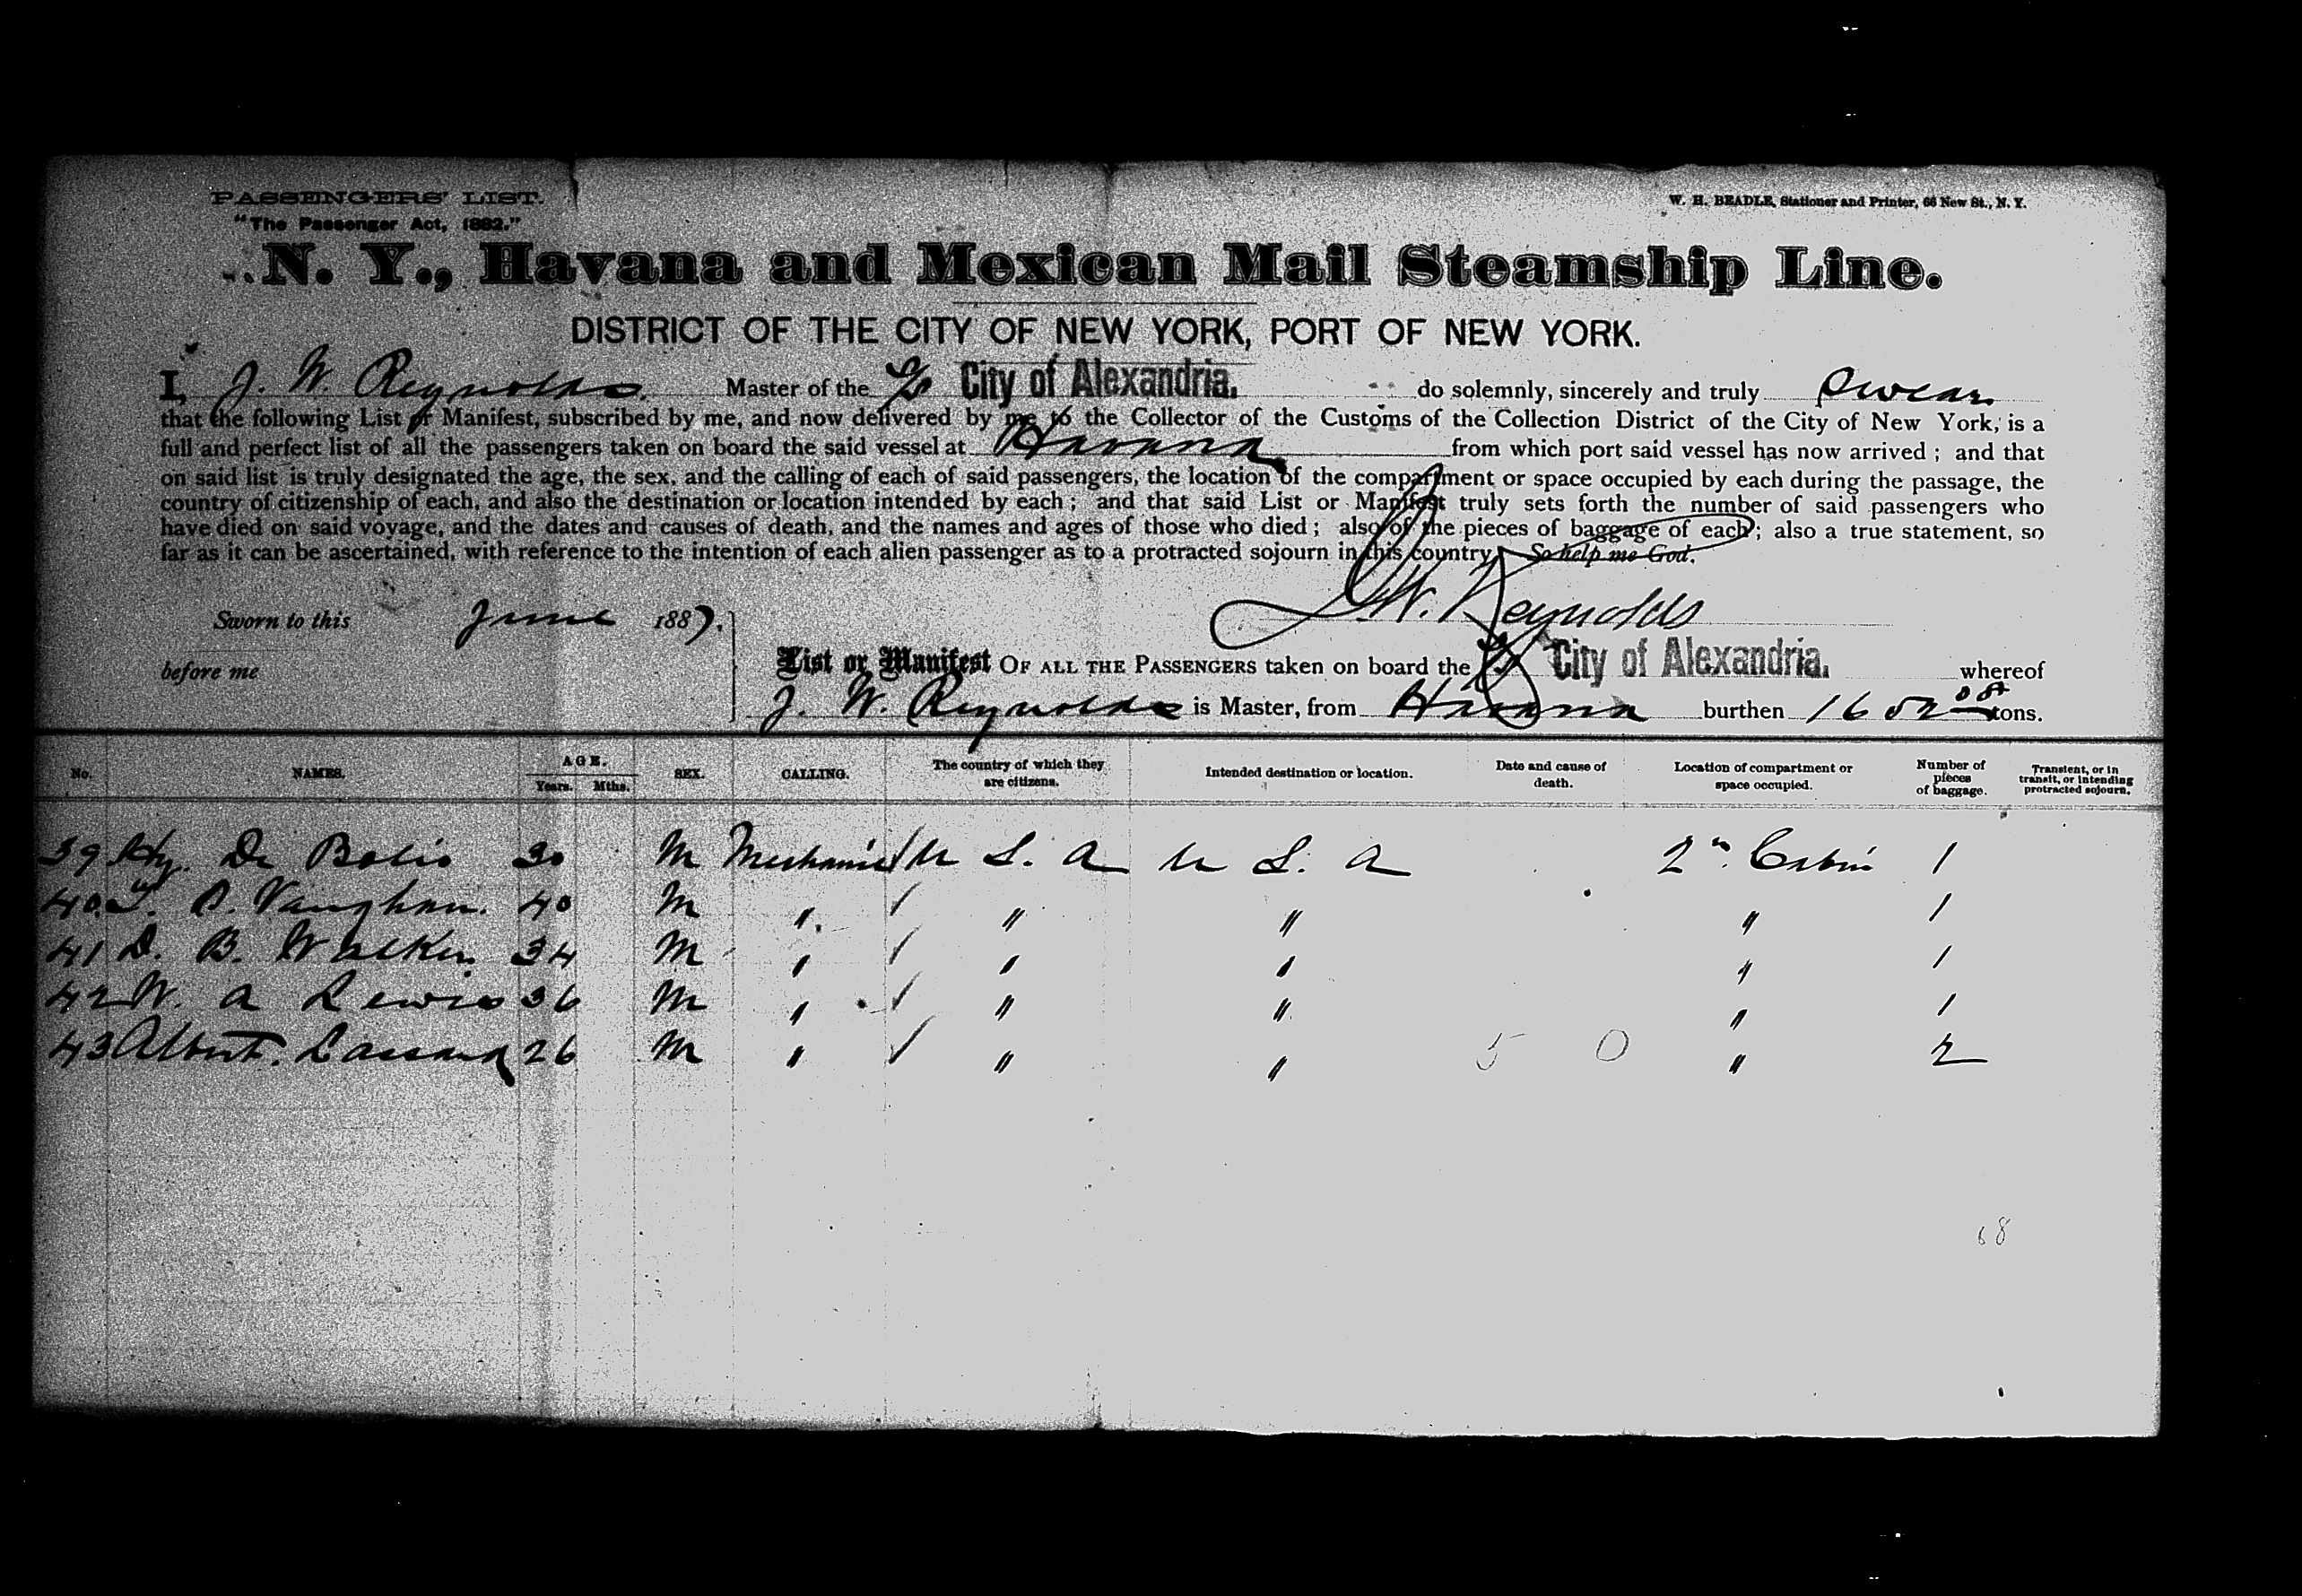 PASSENGERS' LIST.
"The Passenger Act, 1882."
W. H. BEADLE, Stationer and Printer, 66 New St., N. Y.
N. Y., Havana and Mexican Mail Steamship Line.
DISTRICT OF THE CITY OF NEW YORK, PORT OF NEW YORK.
I, J. W. Reynolds. Master of the S/S City of Alexandria. do solemnly, sincerely and truly swear
that the following List or Manifest, subscribed by me, and now delivered by me to the Collector of the Customs of the Collection District of the City of New York, is a
full and perfect list of all the passengers taken on board the said vessel at Havana from which port said vessel has now arrived ; and that
on said list is truly designated the age, the sex, and the calling of each of said passengers, the location of the compartment or space occupied by each during the passage, the
country of citizenship of each, and also the destination or location intended by each ; and that said List or Manifest truly sets forth the number of said passengers who
have died on said voyage, and the dates and causes of death, and the names and ages of those who died ; also of the pieces of baggage of each ; also a true statement, so
far as it can be ascertained, with reference to the intention of each alien passenger as to a protracted sojourn in this country. So help me God.
J. W. Reynolds
Sworn to this June 1887.
before me
List or Manifest OF ALL THE PASSENGERS taken on board the S/S City of Alexandria. whereof
J. W. Reynolds is Master, from Havana burthen tons.
No. NAMES. AGE. Years. Mths. SEX. CALLING. The country of which they are citizens. Intended destination or location. Date and cause of death. Location of compartment or space occupied. Number of pieces of baggage. Transient, or in transit, or intending protracted sojourn.
39 Hy. De Bolio 30 M Mechanic U S. A U S. A 2n Cabin 1
40 Vaughan. 40 M " " " " 1
41 D. B. Walker 34 M " " " " 1
42 W. A Lewis 36 M " " " " 1
43 Albert. 26 M " " " 5 0 " 2
68